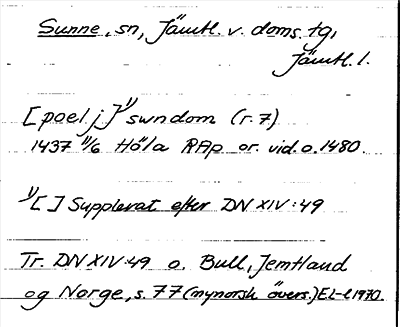 Sunne, sn, Jämtl. v. doms. tg,
Jämtl. l.
[poel j]¹⁾ swndom (r. 7)
1437 11/6 Höla RAp or. vid. o. 1480.
¹⁾[ ] Supplerat efter DN XIV:49
Tr. DN XIV:49 o. Bull, Jemtland
og Norge, s. 77 (nynorsk övers.) EL-l 1970.